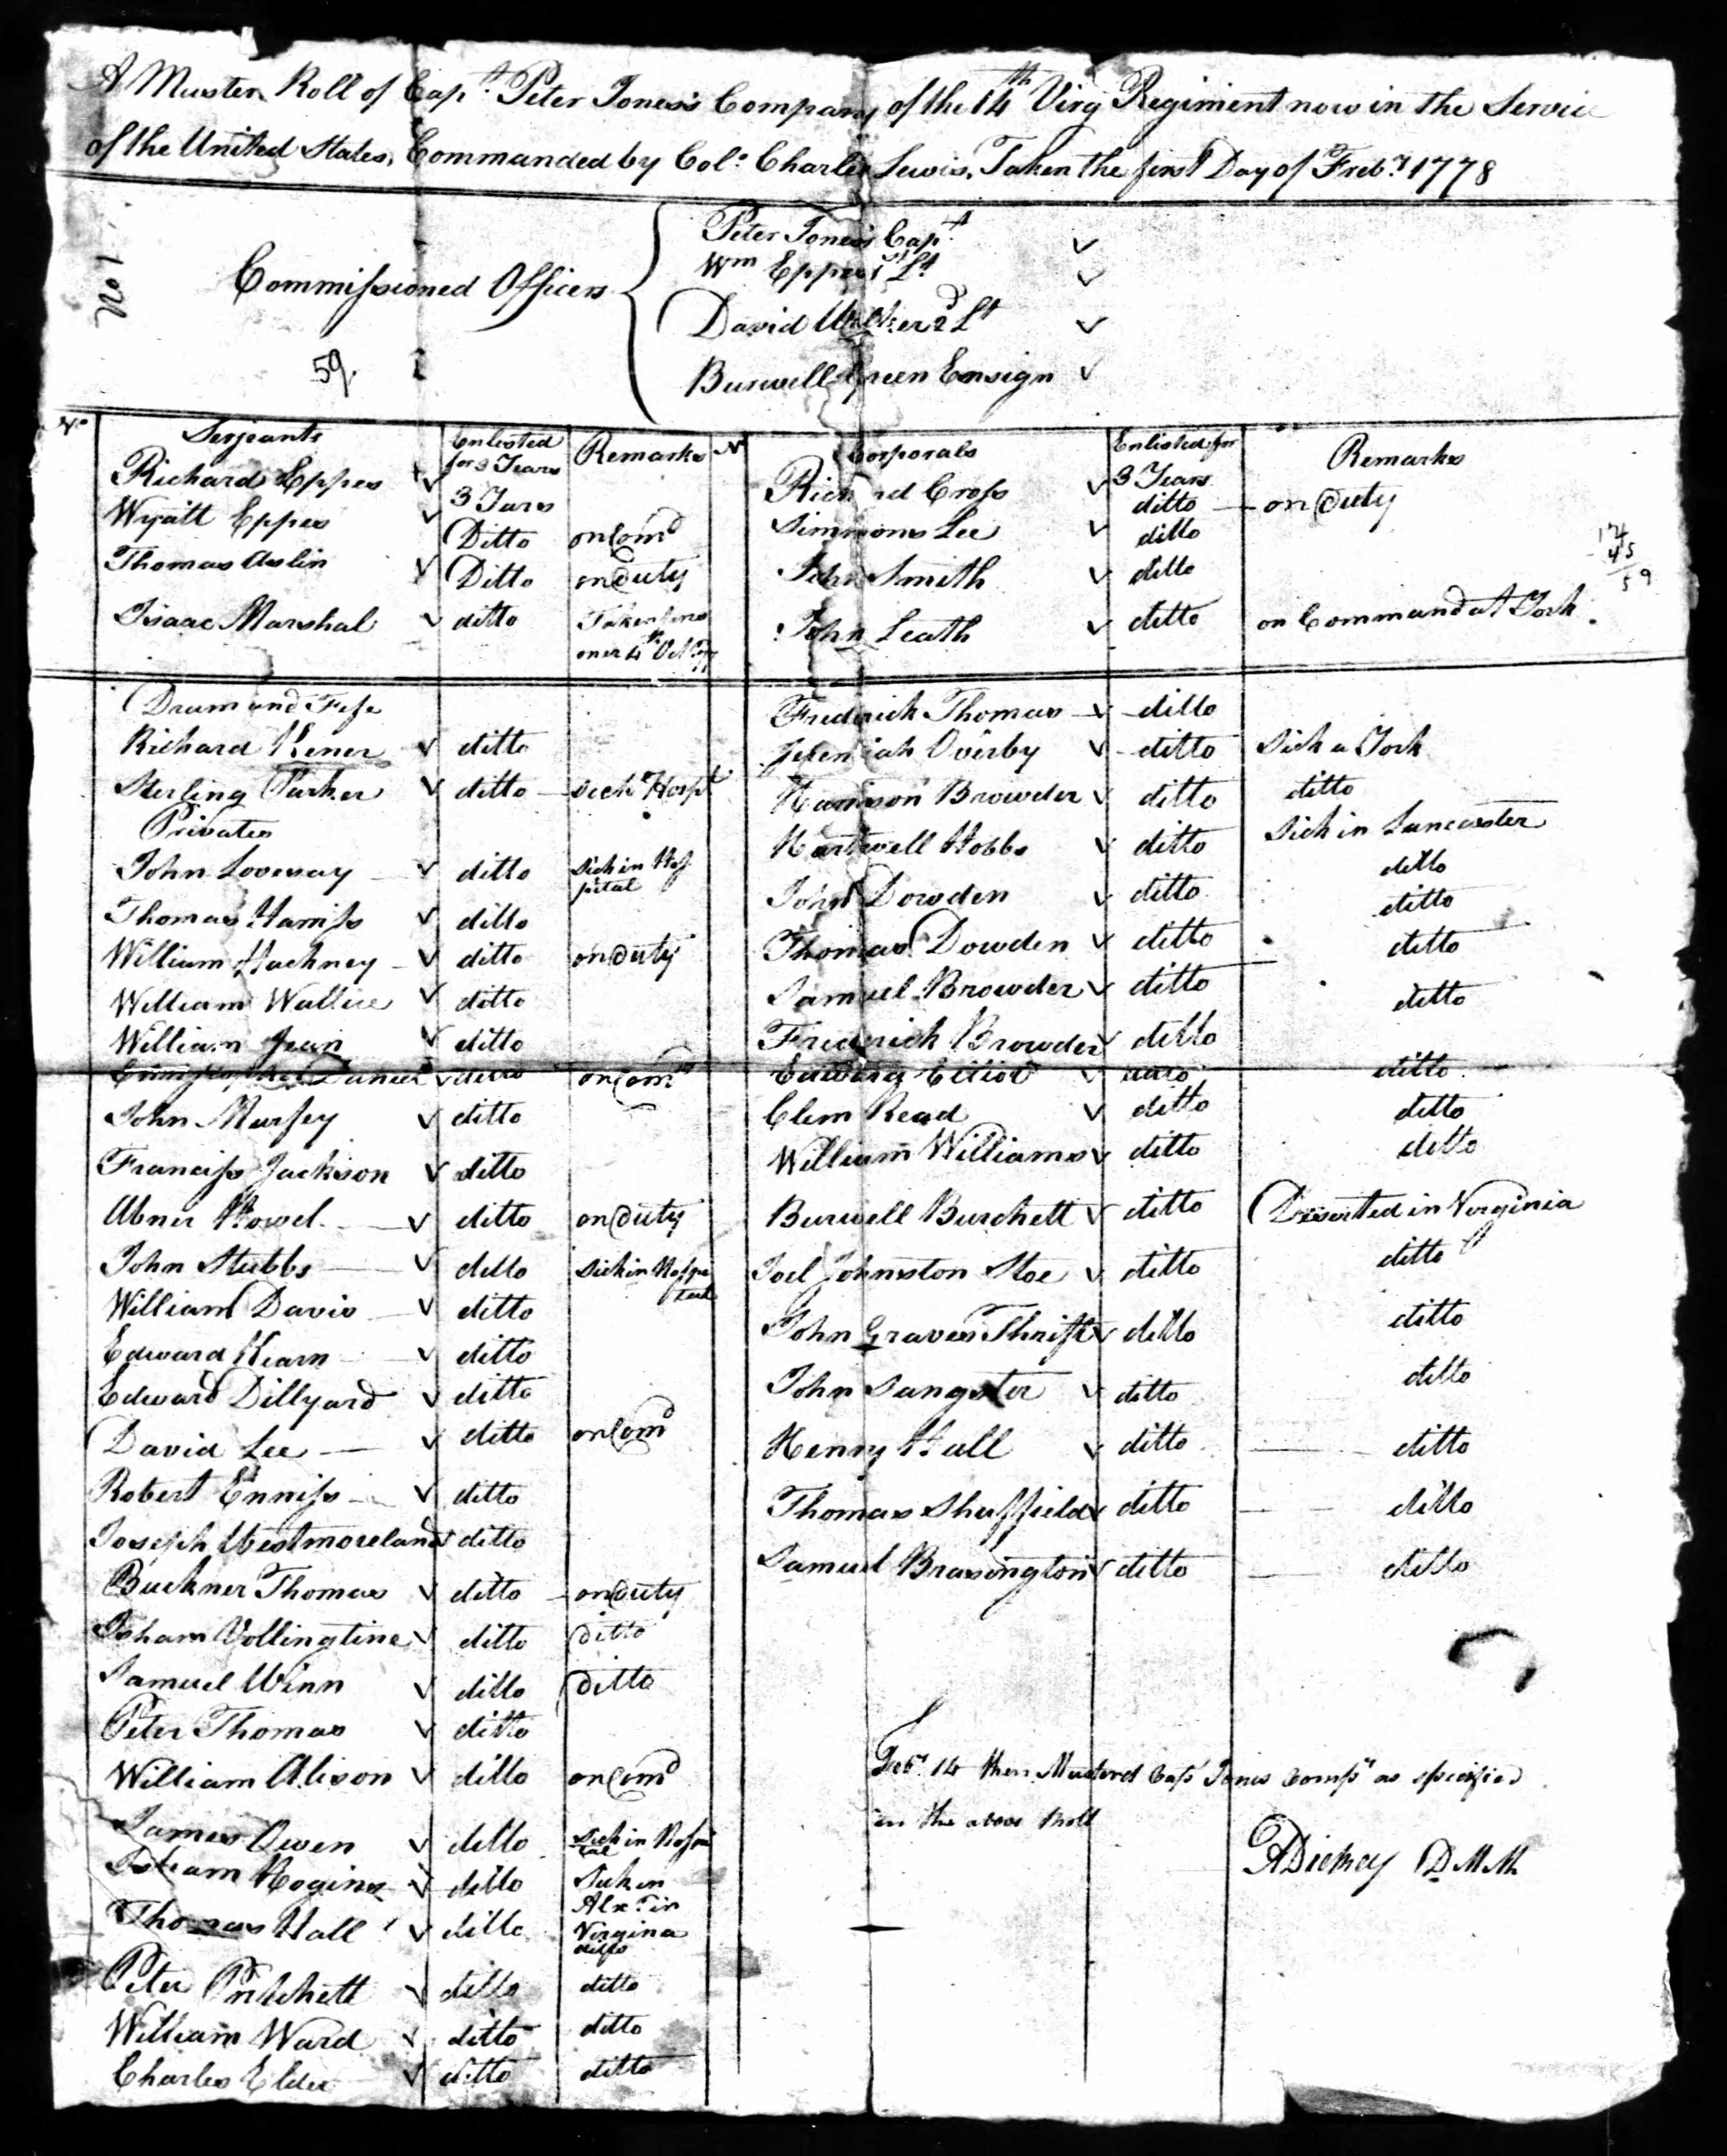 A Muster Roll of Capt. Peter Jones's Company of the 14th Virg Regiment now in the Service
of the United States, Commanded by Col. Charles Lewis, Taken the first Day of Freby 1778
No 1
Commissioned Officers
59
Peter Jones Capt.
Wm Eppes 1st Lt
David Walker 2d Lt
Burwell Green Ensign
No Serjeants Enlisted for 3 Years Remarks
Richard Eppes 3 Years
Wyatt Eppes Ditto on Comd
Thomas Aslin Ditto on Duty
Isaac Marshal ditto Taken pris
oner 4th Octr 77
N Corporals Enlisted for 3 Years Remarks
Richard Cross ditto on Duty
Simmons Lee ditto
John Smith ditto
John Leath ditto on Command at York
14
45
59
Drum and Fife
Richard Kener ditto
Sterling Parker ditto Sick Hospt
Privates
John Loveway ditto Sick in Hos
pital
Thomas Harriss ditto
William Hackney ditto on Duty
William Wallice ditto
William Jean ditto
Daniel ditto on Comd
John Mursey ditto
Franciss Jackson ditto
Abner Howel ditto on Duty
John Stubbs ditto Sick in Hospi
tal
William Davis ditto
Edward Kearn ditto
Edward Dillyard ditto
David Lee ditto on Comd
Robert Enniss ditto
Joseph Westmoreland ditto
Buckner Thomas ditto on Duty
Isham Vollingtine ditto ditto
Samuel Winn ditto ditto
Peter Thomas ditto
William Alison ditto on Comd
James Owen ditto Sick in Hospi
tal
Isham Rogins ditto Sick in
Alx in
Thomas Hall ditto Virgina
ditto
Peter Pritchett ditto ditto
William Ward ditto ditto
Charles Elder ditto ditto
Frederick Thomas ditto
Jeremiah Overby ditto Sick a York
Harrison Browder ditto ditto
Hartwell Hobbs ditto Sick in Lancaster
John Dowden ditto ditto
Thomas Dowden ditto ditto
Samuel Browder ditto ditto
Friderich Browder ditto ditto
Edward Elliot ditto ditto
Clem Read ditto ditto
William Williams ditto ditto
Burwell Burchett ditto Diserted in Verginia
Joel Johnston Stoe ditto ditto
John Graves Thrift ditto ditto
John Sangster ditto ditto
Henry Hall ditto ditto
Thomas Shuffield ditto ditto
Samuel Brasington ditto ditto
Feby 14 then Mustered Capt Jones Compy as specified
in the above Roll
ADickey D M M